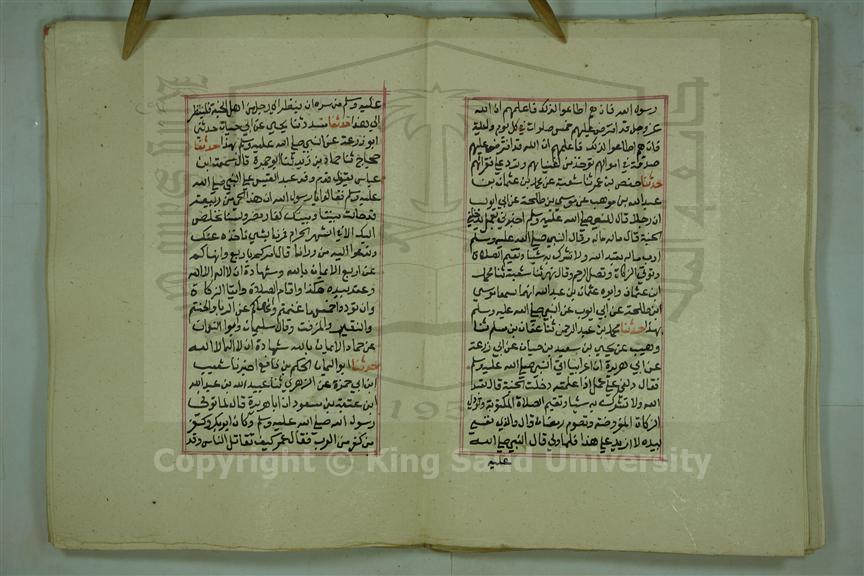 رسول الله فان هم اطاعوا لذلك فاعلمهم ان الله
عز وجل قد افترض عليهم خمس صلوات في كل يوم وليلة
فان هم اطاعوا لذلك فاعلمهم ان الله قد افترض عليهم
صدقة في اموالهم توخذ من اغنيائهم وترد علي فقرائهم
حدثنا حفص بن عمر ثنا شعبة عن محمد بن عثمان بن
عبد الله بن موهب عن موسي بن طلحة عن ابي ايوب
ان رجلا قال للنبي صلي الله عليه وسلم اخبرني بعمل يدخلني
الجنة قال ماله ماله وقال النبي صلي الله عليه وسلم
ارب ماله تعبد الله ولا تشرك به شيا وتقيم الصلاة
وتوتي الزكاة وتصل الرحم وقال بهز ثنا شعبة ثنا محمد
ابن عثمان وابوه عثمان بن عبد الله انهما سمعا موسي
ابن طلحة عن ابي ايوب عن النبي صلي الله عليه وسلم
بهذا حدثنا محمد بن عبد الرحمن ثنا عفان بن مسلم ثنا
وهيب عن يحيي بن سعيد بن حيان عن ابي زرعة
عن ابي هريرة ان اعرابيا اتي النبي صلي الله عليه وسلم
فقال دلني علي عمل اذا عملته دخلت الجنة قال تعبد
الله ولا تشرك به شيا وتقيم الصلاة المكتوبة وتودي
الزكاة المفروضة وتصوم رمضان قال والذي نفسي
بيده لا ازيد علي هذا فلما ولي قال النبي صلي الله
عليه
عليه وسلم من سره ان ينظر الي رجل من اهل الجنة فلينظر
الي هذا حدثنا مسدد ثنا يحيي عن ابي حيان حدثني
ابو زرعة عن النبي صلي الله عليه وسلم بهذا حدثنا
حجاج ثنا حماد بن زيد ثنا ابو جمرة قال سمعت ابن
عباس يقول قدم وفد عبد القيس علي النبي صلي الله
عليه وسلم فقالوا يا رسول الله ان هذا الحي من ربيعة
قد حالت بيننا وبينك كفار مضر ولسنا نخلص
اليك الا في الشهر الحرام فمرنا بشي ناخذه عنك
وندعوا اليه من وراءنا قال امركم باربع وانهاكم
عن اربع الايمان بالله وشهادة ان لا اله الا الله
وعقد بيده هكذا واقام الصلاة وايتا الزكاة
وان تودوا خمس ما غنمتم وانهاكم عن الدبا والحنتم
والنقير والمزفت وقال سليمان وابوا النعمان
عن حماد الايمان بالله شهادة ان لا اله الا الله
حدثنا ابو اليمان الحكم بن نافع اخبرنا شعيب
ابن ابي حمزة عن الزهري ثنا عبيد الله بن عبد الله
ابن عتبة بن مسعود ان ابا هريرة قال لما توفي
رسول الله صلي الله عليه وسلم وكان ابو بكر وكفر
من كفر من العرب فقال عمر كيف تقاتل الناس وقد
Copyright © King Saud University